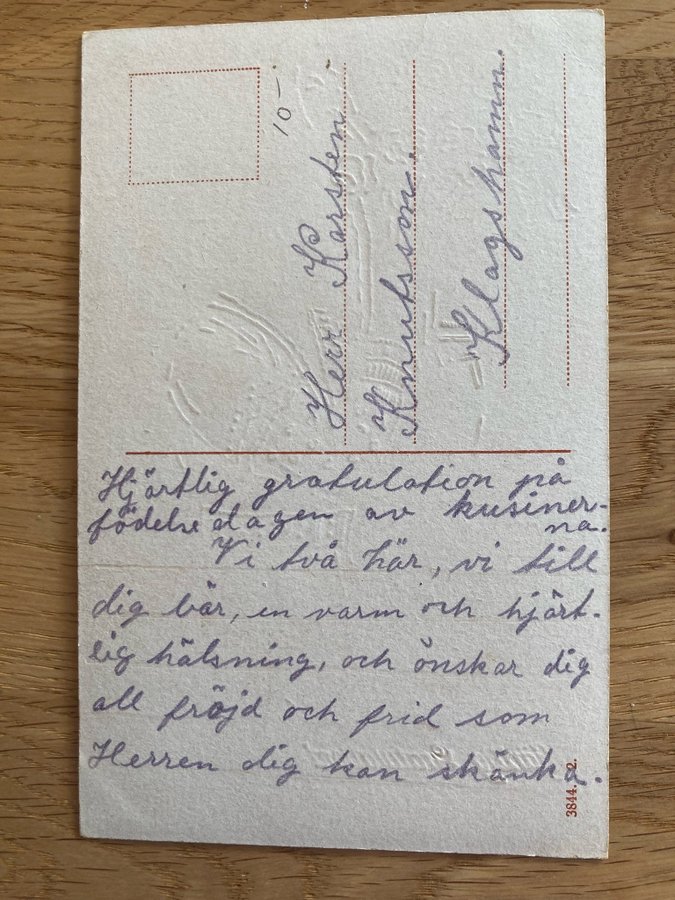 10-
Herr Karsten
Knutsson.
Klagshamn.
Hjärtlig gratulation på
födelsedagen av kusiner-
na.
Vi två här, vi till
dig bär, en varm och hjärt-
lig hälsning, och önskar dig
all fröjd och frid som
Herren dig kan skänka.